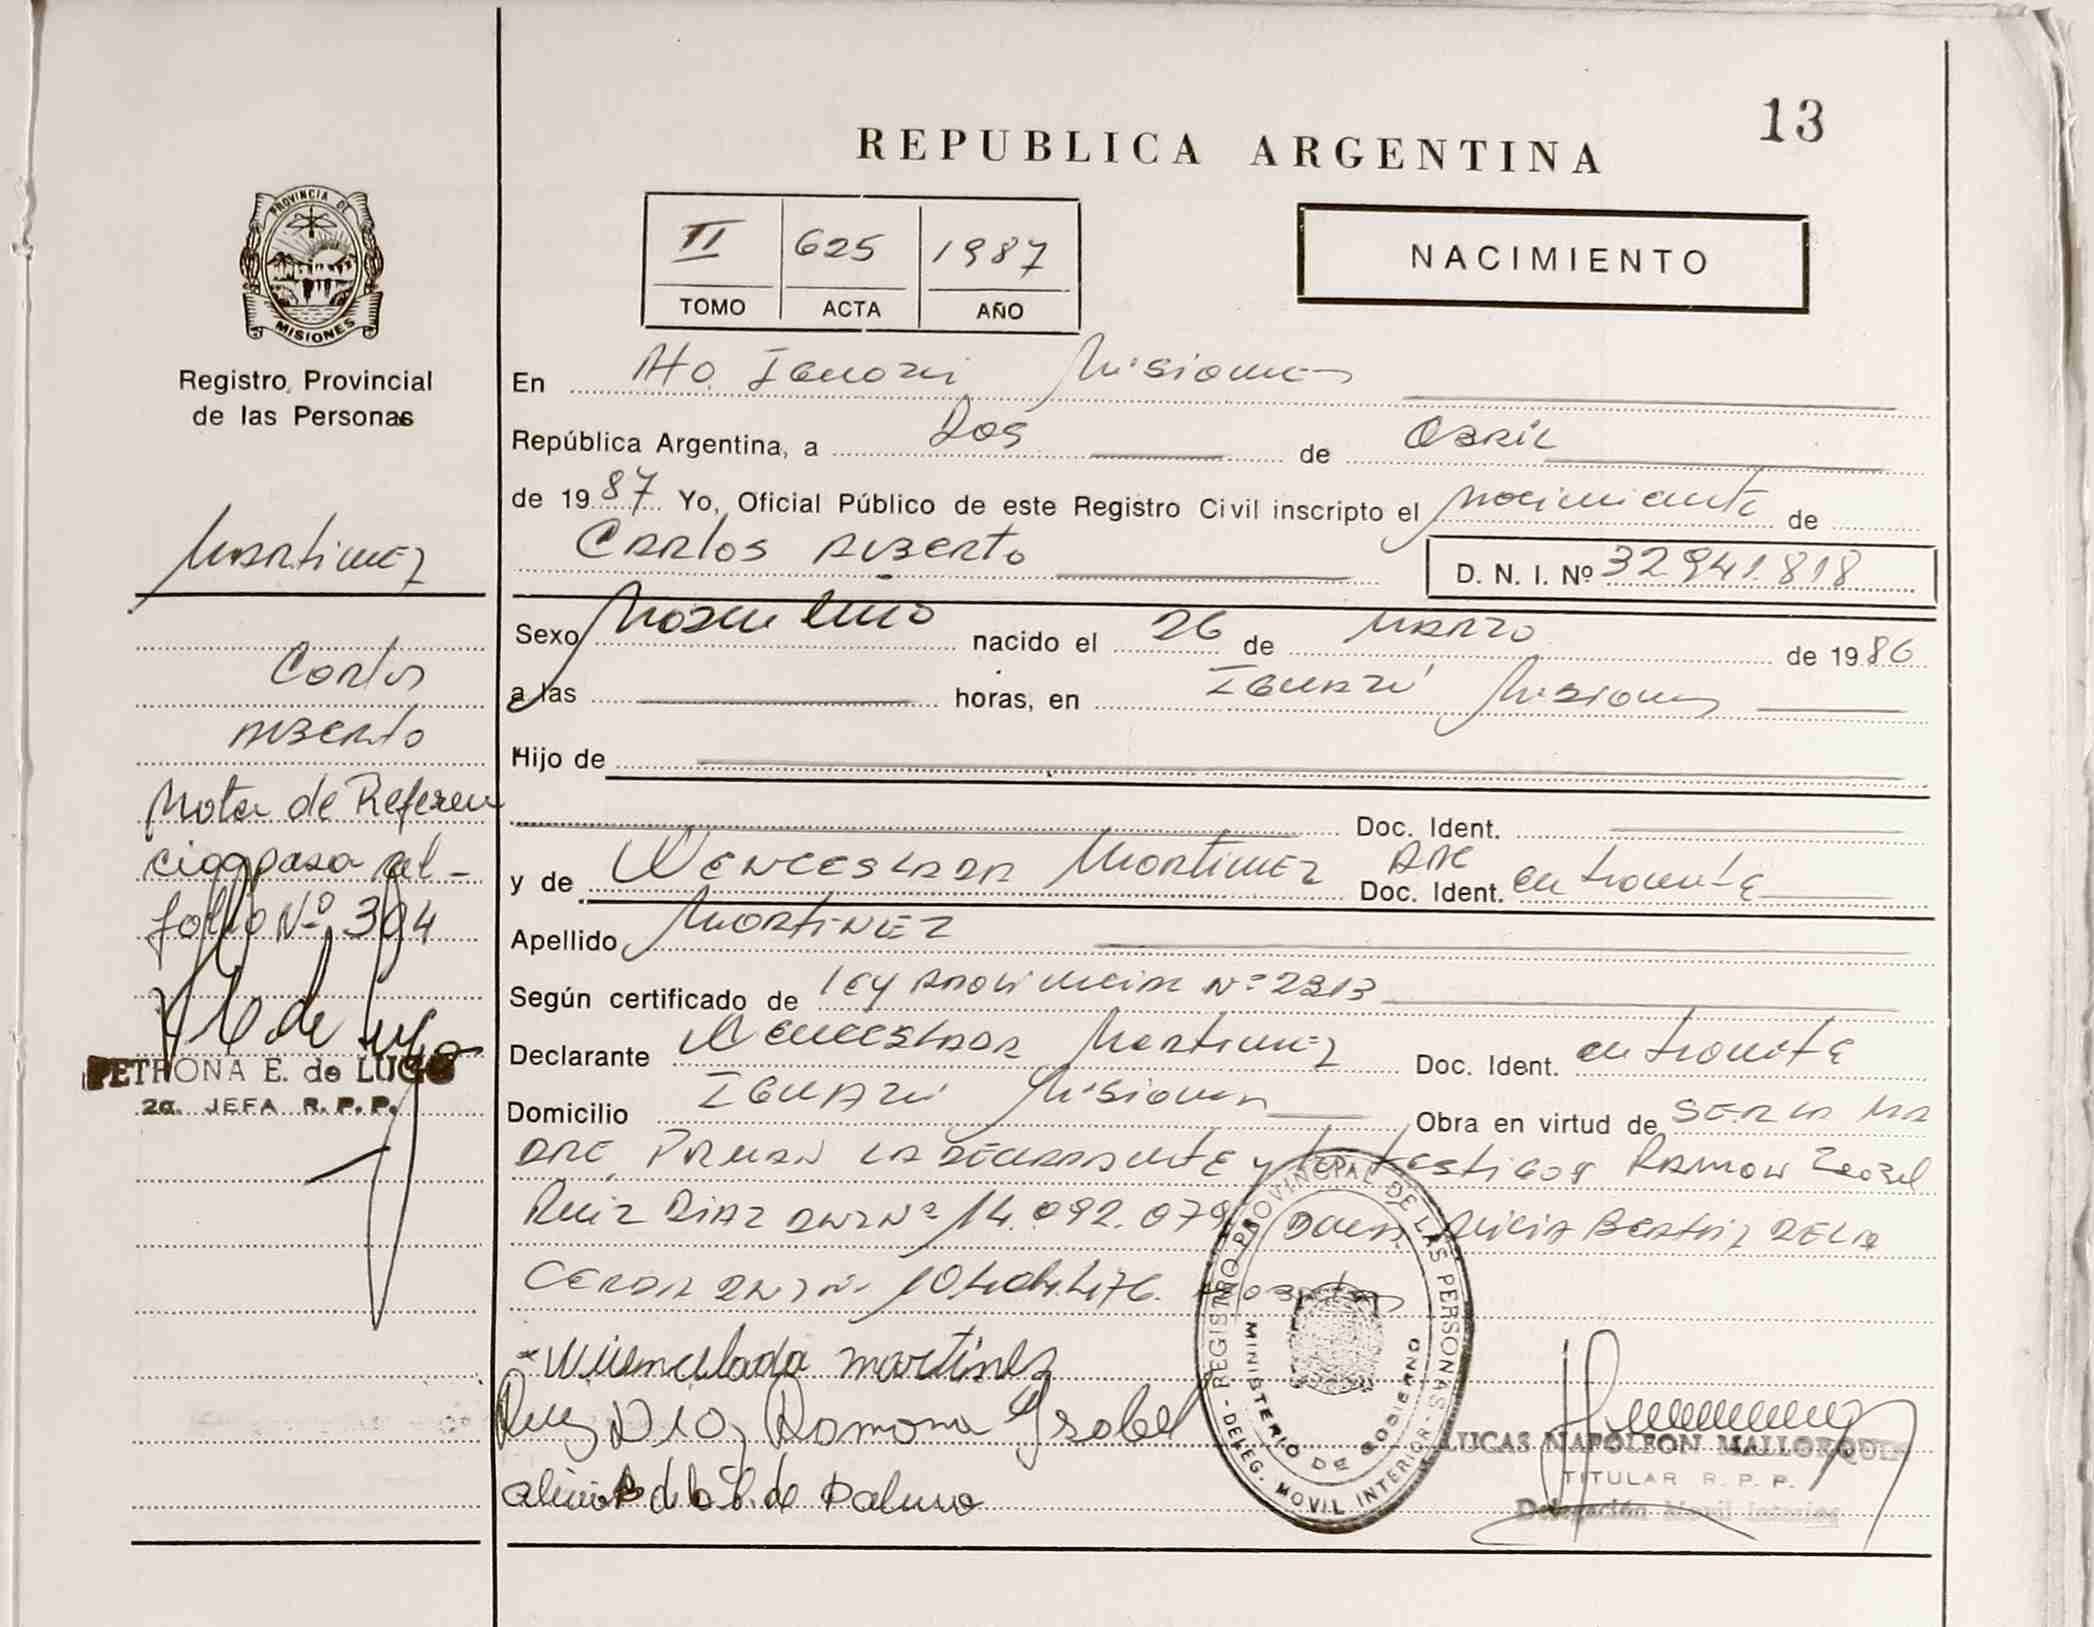 13
REPUBLICA ARGENTINA
PROVINCIA DE
MISIONES
Registro Provincial
de las Personas
II 625 1987
TOMO ACTA AÑO
NACIMIENTO
En Pto. Iguazú Misiones
República Argentina, a Dos de Abril
de 1987 Yo, Oficial Público de este Registro Civil inscripto el nacimiento de
Carlos Alberto D. N. I. Nº 32.941.818
Martinez
Carlos
Alberto
Nota de Referen
cia pasa al
folio Nº 304
PETRONA E. de LUGO
2a. JEFA R. P. P.
Sexo Masculino nacido el 26 de Marzo de 1986
a las horas, en Iguazú Misiones
Hijo de
Doc. Ident.
y de Wenceslada Martinez Doc. Ident.
Apellido Martinez
Según certificado de ley Nº 2313
Declarante Wenceslada Martinez Doc. Ident.
Domicilio Iguazú Misiones Obra en virtud de ser la ma
dre, Firman la declarante y testigos Ramona Isabel
Ruiz Diaz DNI Nº 14.092.079 Alicia Beatriz de la
Cerda DNI Nº
martinez
Ruiz Diaz Ramona Ysabel
REGISTRO PROVINCIAL DE LAS PERSONAS - DELEG. MOVIL INTERIOR -
MINISTERIO DE GOBIERNO
LUCAS NAPOLEON MALLORQUIN
TITULAR R. P. P.
Delegación Movil Interior